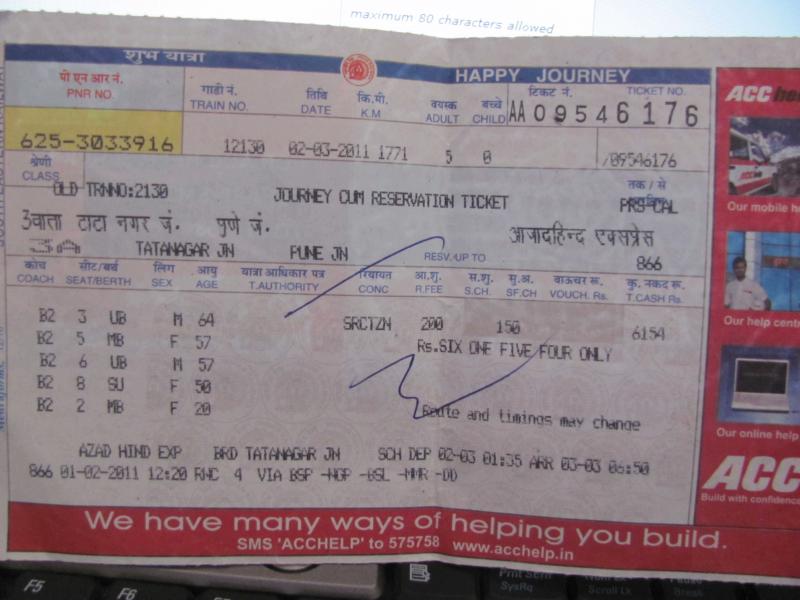 maximum 80 characters allowed
शुभ यात्रा
HAPPY JOURNEY
पी एन आर नं. गाडी नं. तिथि कि.मी. वयस्क बच्चे टिकट नं. TICKET NO.
PNR NO. TRAIN NO. DATE K.M ADULT CHILD AA 09546176
625-3033916 12130 02-03-2011 1771 5 0 /09546176
श्रेणी
CLASS
तक / से
OLD TRNNO:2130 JOURNEY CUM RESERVATION TICKET PRS-CAL
3वाता टाटा नगर जं. पुणे जं. आजादहिन्द एक्सप्रेस
TATANAGAR JN PUNE JN RESV. UP TO 866
कोच सीट/बर्थ लिंग आयु यात्रा अधिकार पत्र रियायत आ.शु. स.शु. सु.अ. वाऊचर रू. कु. नकद रू.
COACH SEAT/BERTH SEX AGE T.AUTHORITY CONC R.FEE S.CH. SF.CH VOUCH. Rs. T.CASH Rs.
B2 3 UB M 64 SRCTZN 200 150 6154
B2 5 MB F 57 Rs.SIX ONE FIVE FOUR ONLY
B2 6 UB M 57
B2 8 SU F 50
B2 2 MB F 20 Route and timings may change
AZAD HIND EXP BRD TATANAGAR JN SCH DEP 02-03 01:35 ARR 03-03 06:50
866 01-02-2011 12:20 RNC 4 VIA BSP -NGP -BSL -MMR -DD
We have many ways of helping you build.
SMS 'ACCHELP' to 575758 www.acchelp.in
ACC
Our mobile
Our help
Our online help
ACC
Build with confidence
F5
F6
Prnt Scrn
SysRq
Scroll Lx
Pause
Break